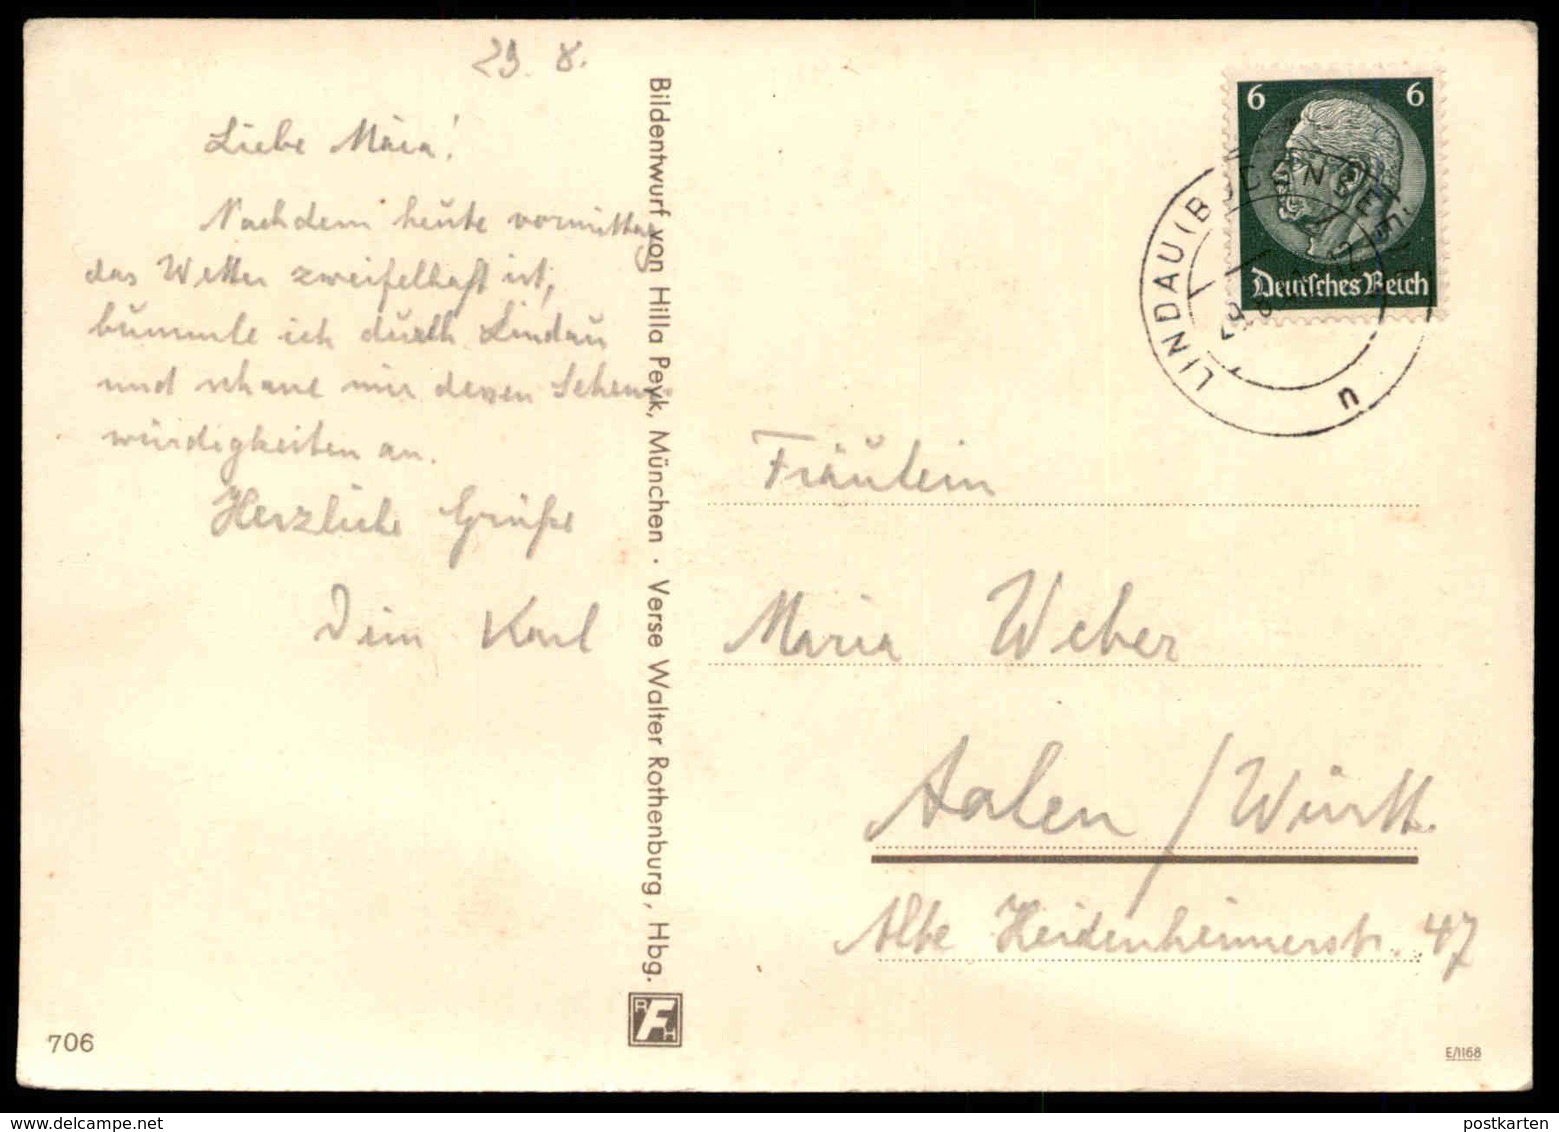 29. 8.
Liebe Maria!
Nachdem heute vormittag
das Wetter zweifelhaft ist,
bummle ich durch Lindau
und schaue mir dessen Sehens-
würdigkeiten an.
Herzliche Grüße
Dein Karl
706
Bildentwurf von Hilla Peyk, München · Verse Walter Rothenburg, Hbg.
RFH
6 6
Deutsches Reich
LINDAU (BODENSEE)
n
Fräulein
Maria Weber
Aalen / Württ.
Alte Heidenheimerstr. 47
E/1168
postkarten